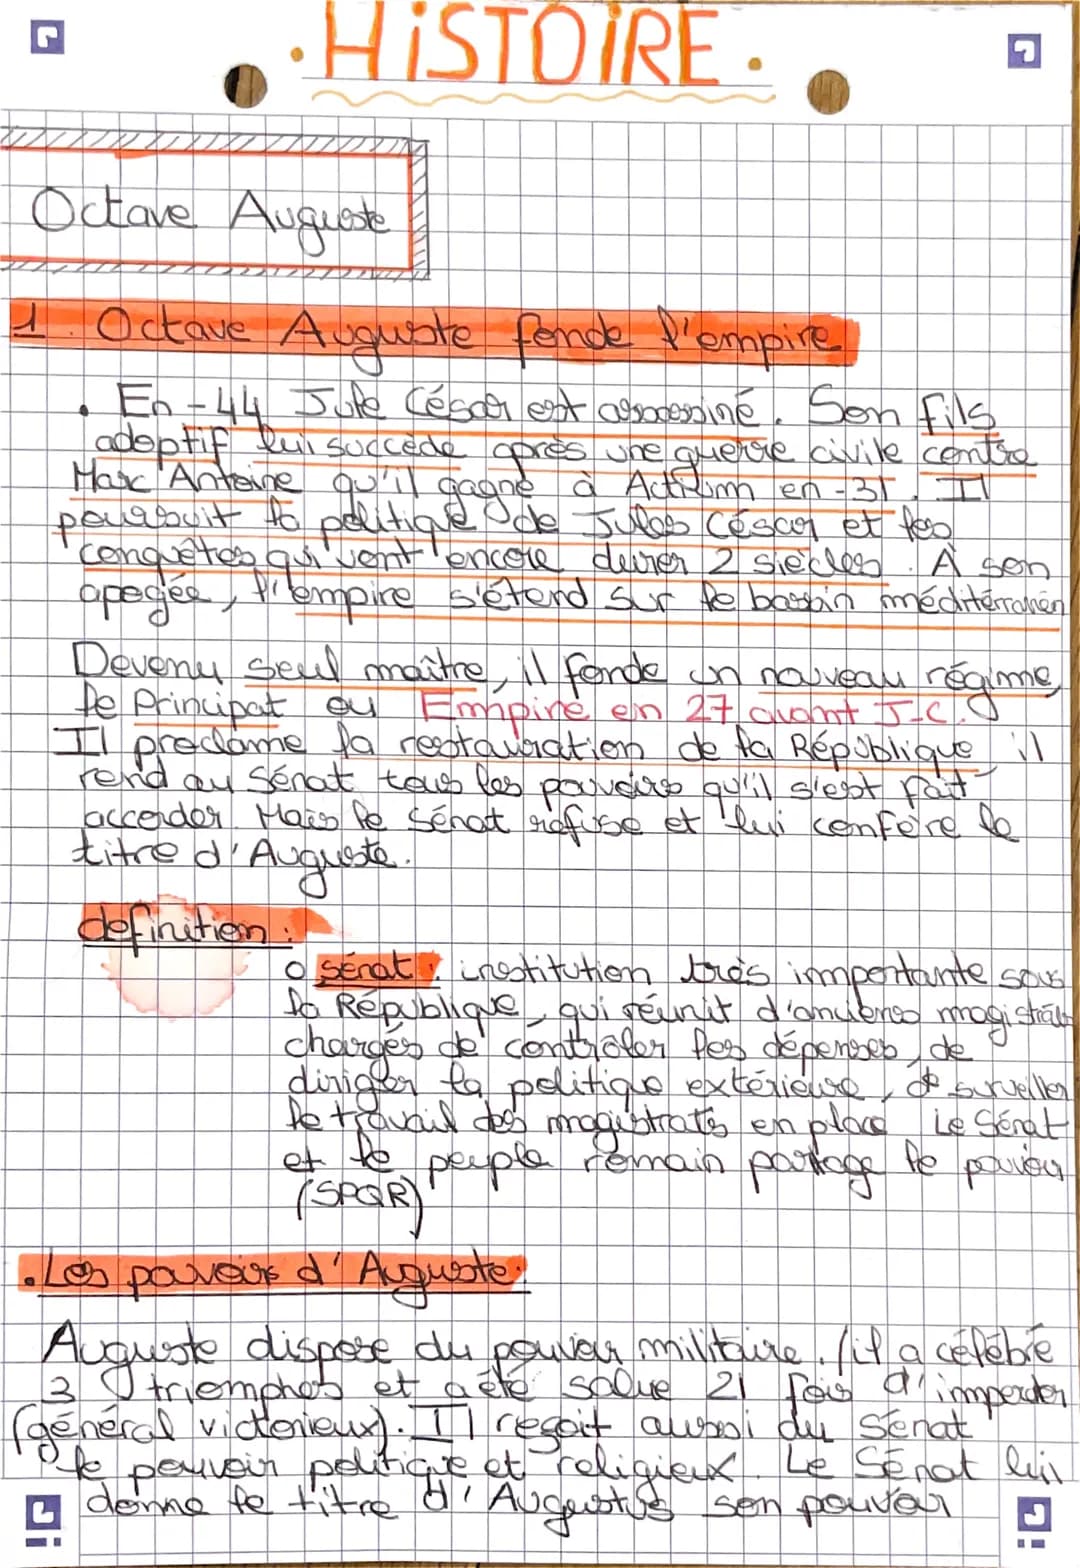 . HiSTOiRE .
Octave Auguste
1. Octave Auguste fonde l'empire
. En -44 Jule César est assassiné. Son fils
adoptif lui succède après une guerre civile contre
Marc Antoine qu'il gagne à Actium en -31. Il
poursuit la politique de Jules César et les
conquêtes qui vont encore durer 2 siècles. À son
apogée, l'empire s'étend sur le bassin méditérranén
Devenu seul maître, il fonde un nouveau régime,
le Principat ou Empire en 27 avant J-C.
Il proclame la restauration de la République, il
rend au Sénat tous les pouvoirs qu'il s'est fait
accorder. Mais le Sénat refuse et lui confère le
titre d'Auguste.
definition :
o sénat : institution très importante sous
la République, qui réunit d'anciens magistrats
chargés de contrôler les dépenses, de
diriger la politique extérieure, de surveiller
le travail des magistrats en place. Le Sénat
et le peuple romain partage le pouvoir
(SPQR)
. Les pouvoirs d'Auguste:
Auguste dispose du pouvoir militaire. (il a célébré
3 triomphes et a été salué 21 fois d'imperator
(général victorieux). Il reçoit aussi du Sénat
le pouvoir politique et religieux. Le Sénat lui
donne le titre d'Augustus son pouvoir